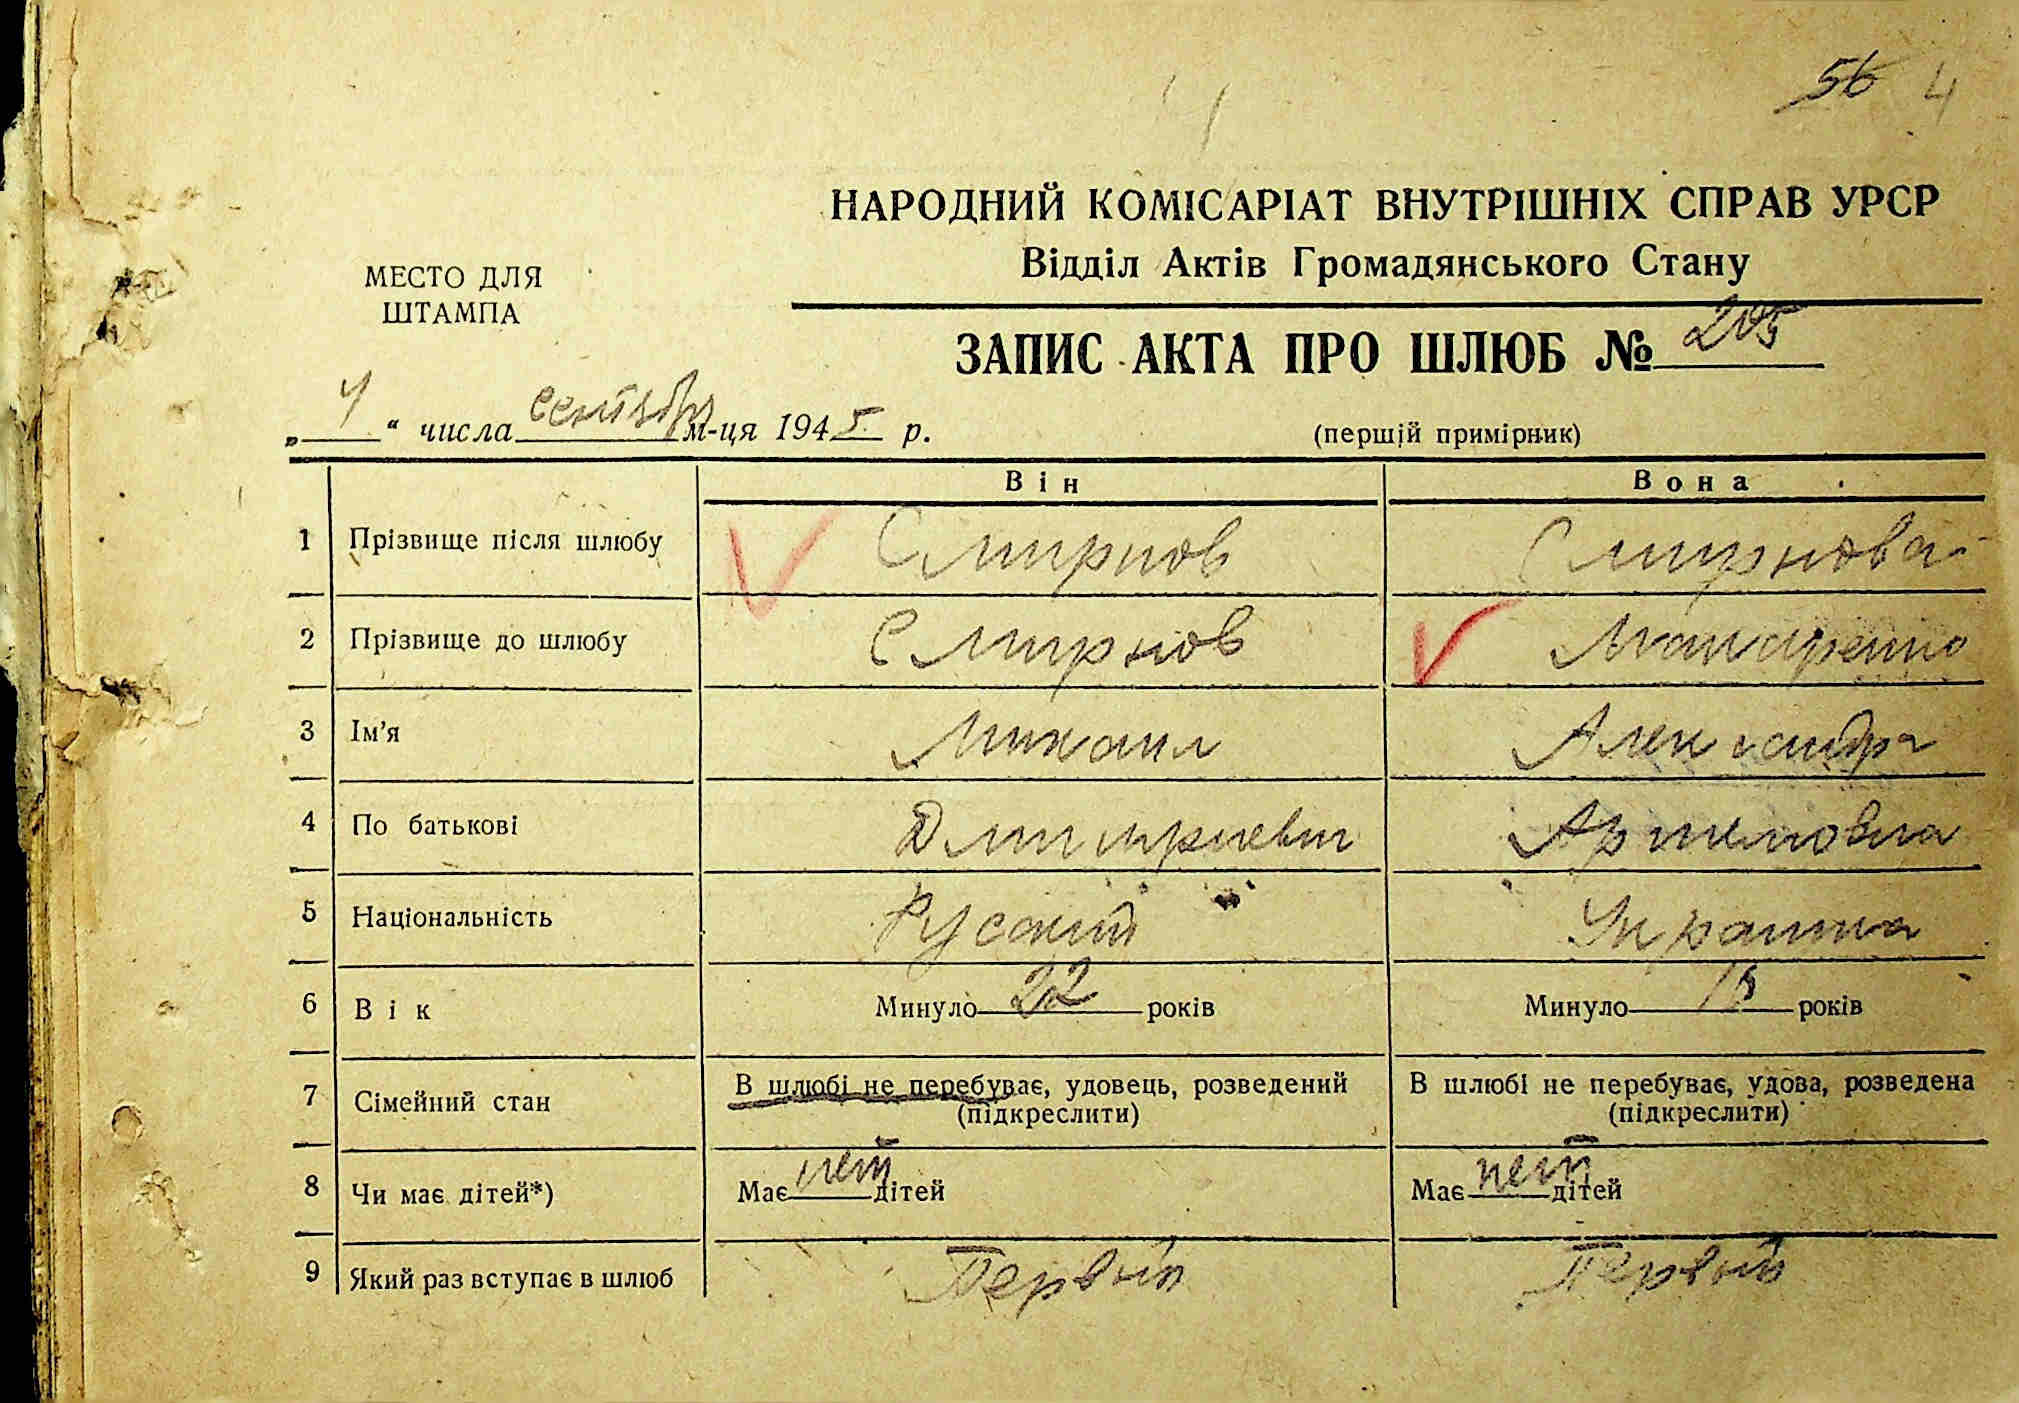 56 4
НАРОДНИЙ КОМІСАРІАТ ВНУТРІШНІХ СПРАВ УРСР
Відділ Актів Громадянського Стану
МЕСТО ДЛЯ
ШТАМПА
ЗАПИС АКТА ПРО ШЛЮБ № 205
„ 4 “ числа сентября м-ця 1945 р.
(першій примірник)
Він Вона
1 Прізвище після шлюбу Смирнов Смирнова
2 Прізвище до шлюбу Смирнов Макаренко
3 Ім'я Михаил Александра
4 По батькові Дмитриевич Артемовна
5 Національність Русский Украинка
6 Вік Минуло 22 років Минуло років
7 Сімейний стан В шлюбі не перебуває, удовець, розведений В шлюбі не перебуває, удова, розведена
(підкреслити) (підкреслити)
8 Чи має дітей*) Має нет дітей Має нет дітей
9 Який раз вступає в шлюб Первый Первый